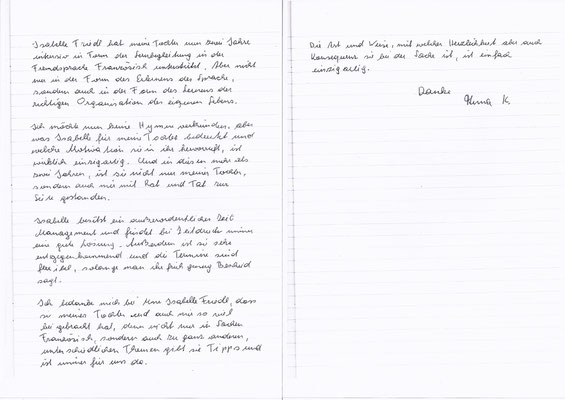 Isabelle Friedl hat meine Tochter nun zwei Jahre
intensiv in Form der Lernbegleitung in der
Fremdsprache Französisch unterstützt. Aber nicht
nur in der Form des Erlernens der Sprache,
sondern auch in der Form des Lernens der
richtigen Organisation des eigenen Lebens.
Ich möchte nun keine Hymnen verkünden, aber
was Isabelle für meine Tochter bedeutet und
welche Motivation sie in ihr hervorruft, ist
wirklich einzigartig. Und in diesen mehr als
zwei Jahren, ist sie nicht nur meiner Tochter,
sondern auch mir mit Rat und Tat zur
Seite gestanden.
Isabelle besitzt ein außerordentliches Zeit
Management und findet bei Zeitdruck immer
eine gute Lösung. Außerdem ist sie sehr
entgegenkommend und die Termine sind
flexibel, solange man ihr früh genug Bescheid
sagt.
Ich bedanke mich bei Isabelle Friedl, dass
sie meiner Tochter und auch mir so viel
bei gebracht hat, denn nicht nur in Sachen
Französisch, sondern auch zu ganz anderen,
unterschiedlichen Themen gibt sie Tipps und
ist immer für uns da.
Die Art und Weise, mit welcher Herzlichkeit aber auch
Konsequenz sie bei der Sache ist, ist einfach
einzigartig.
Danke
K.